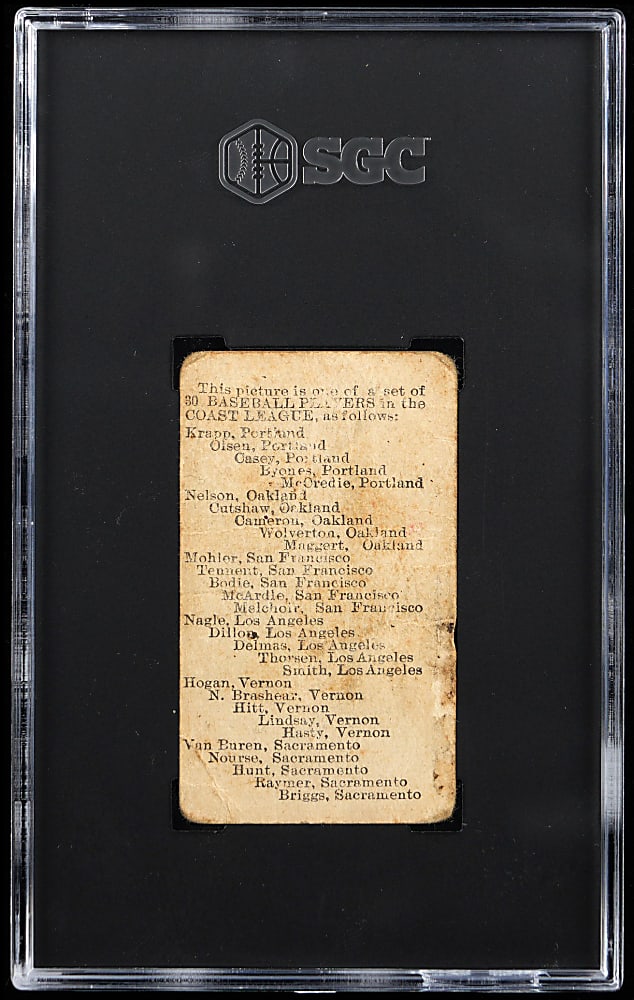 SGC
This picture is one of a set of
30 BASEBALL PLAYERS in the
COAST LEAGUE, as follows:
Krapp, Portland
Olsen, Portland
Casey, Portland
Byones, Portland
McCredie, Portland
Nelson, Oakland
Cutshaw, Oakland
Cameron, Oakland
Wolverton, Oakland
Maggert, Oakland
Mohler, San Francisco
Tennent, San Francisco
Bodie, San Francisco
McArdle, San Francisco
Melchoir, San Francisco
Nagle, Los Angeles
Dillon, Los Angeles
Delmas, Los Angeles
Thorsen, Los Angeles
Smith, Los Angeles
Hogan, Vernon
N. Brashear, Vernon
Hitt, Vernon
Lindsay, Vernon
Hasty, Vernon
Van Buren, Sacramento
Nourse, Sacramento
Hunt, Sacramento
Raymer, Sacramento
Briggs, Sacramento